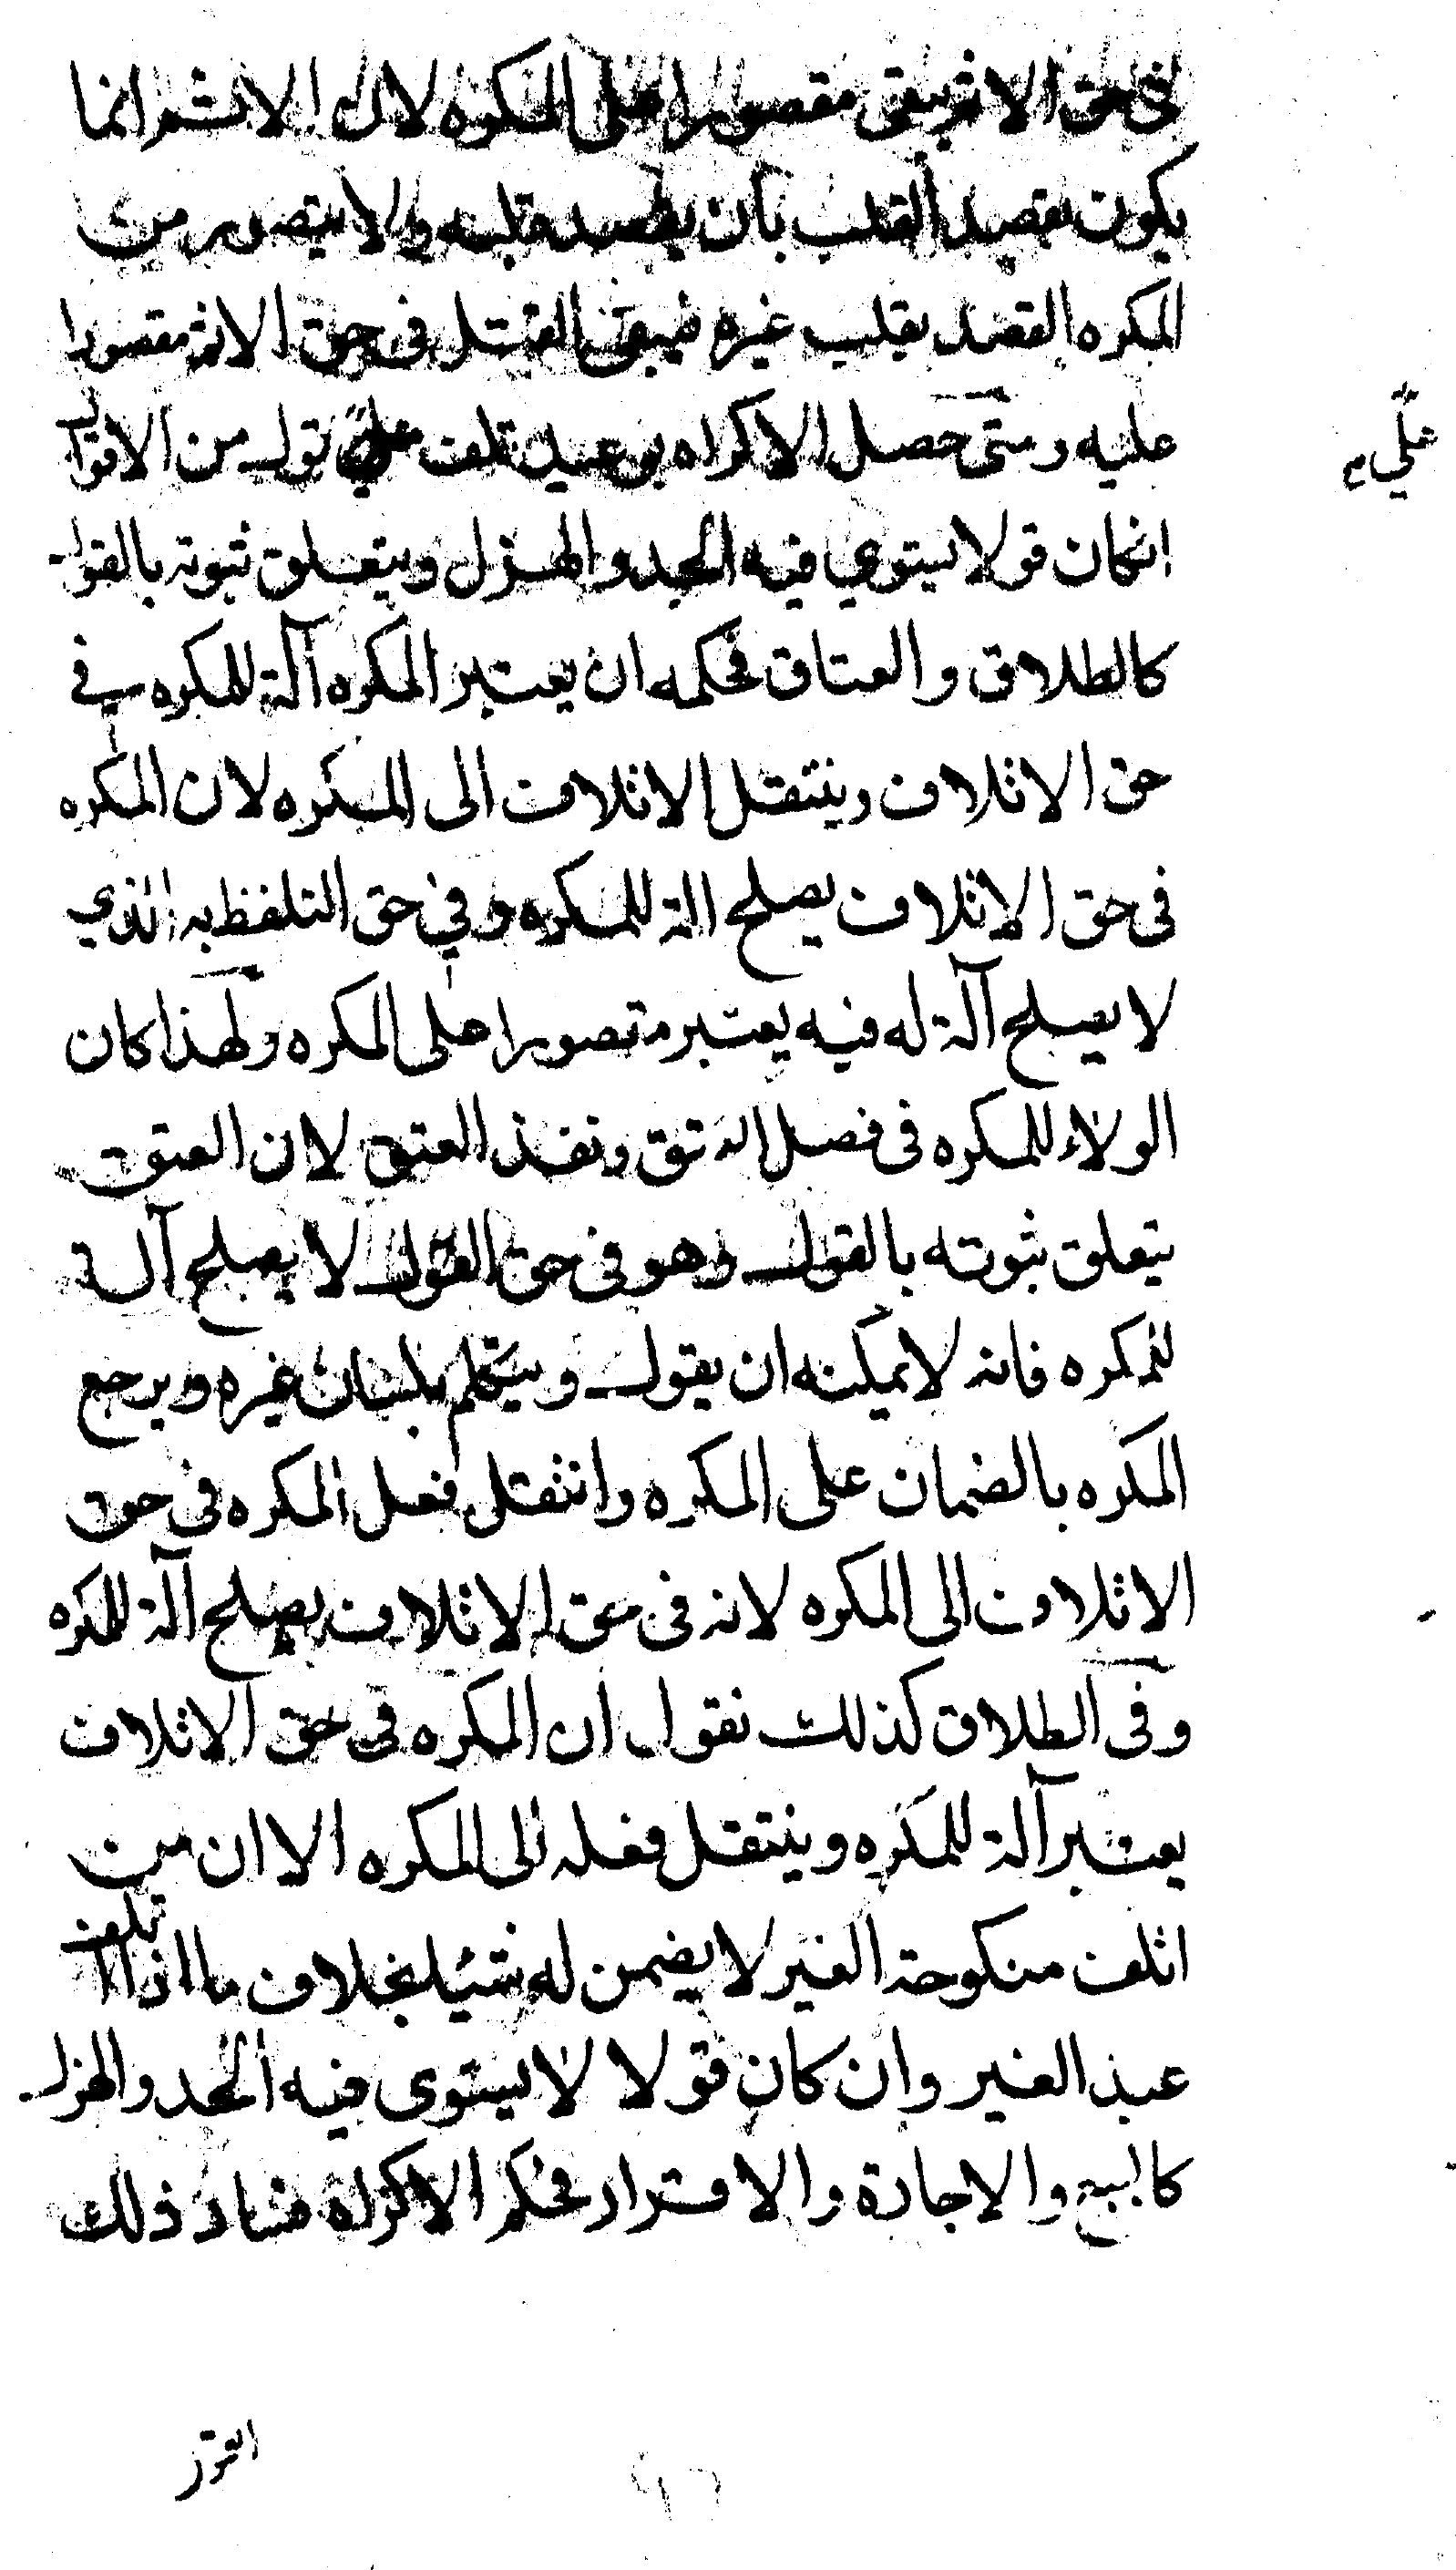 في حق الاثم يبقى مقصورا على المكره لان الاثم انما
يكون بقصد القلب بان يقصد قلبه ولا يتصور من
المكره القصد بقلب غيره فيبقى القتل في حق الاثم مقصورا
عليه ومتى حصل الاكراه بوعيد تلف على قول من الاقوال
انكان قولا يستوي فيه الجد والهزل ويتعلق ثبوته بالقول
كالطلاق والعتاق فحكمه ان يعتبر المكره آلة للمكره في
حق الاتلاف وينتقل الاتلاف الى المكره لان المكره
في حق الاتلاف يصلح الة للمكره وفي حق التلفظ به الذي
لا يصلح آلة له فيه يعتبر مقصورا على المكره ولهذا كان
الولاء للمكره في فصل العتق ونفذ العتق لان العتق
يتعلق ثبوته بالقول وهو في حق القول لا يصلح آلة
للمكره فانه لا يمكنه ان يقول ويتكلم بلسان غيره ويرجع
المكره بالضمان على المكره وانتقل فعل المكره في حق
الاتلاف الى المكره لانه في حق الاتلاف يصلح آلة للمكره
وفي الطلاق كذلك نقول ان المكره في حق الاتلاف
يعتبر آلة للمكره وينتقل فعله الى المكره الا ان من
اتلف منكوحة الغير لا يضمن له شيئا بخلاف ما اذا اتلف
عبد الغير وان كان قولا لا يستوى فيه الجد والهزل
كالبيع والاجارة والاقرار فحكم الاكراه فساد ذلك
على